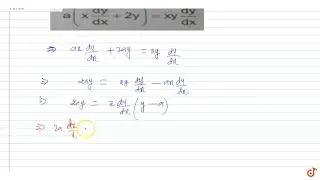 a(x dy/dx + 2y) = xy dy/dx
⇒ ax dy/dx + 2ay = xy dy/dx
⇒ 2ay = xy dy/dx − ax dy/dx
⇒ 2ay = x dy/dx (y − a)
⇒ 2a dx/x